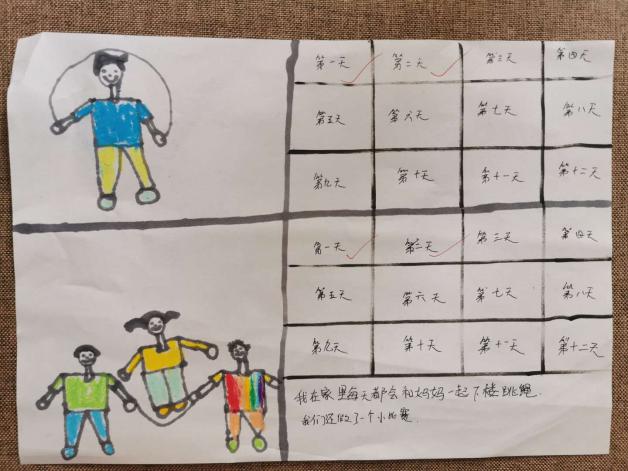 第一天 第二天 第三天 第四天
第五天 第六天 第七天 第八天
第九天 第十天 第十一天 第十二天
第一天 第二天 第三天 第四天
第五天 第六天 第七天 第八天
第九天 第十天 第十一天 第十二天
我在家里每天都会和妈妈一起下楼跳绳.
我们还做了一个小比赛.